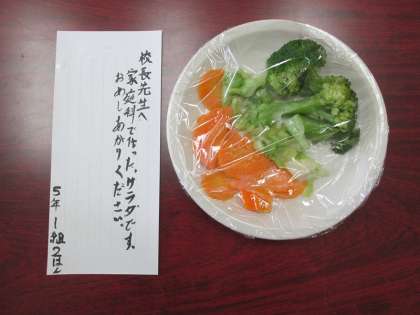 校長先生へ
家庭科で作ったサラダです。
おめしあがりください。
5年1組2はん